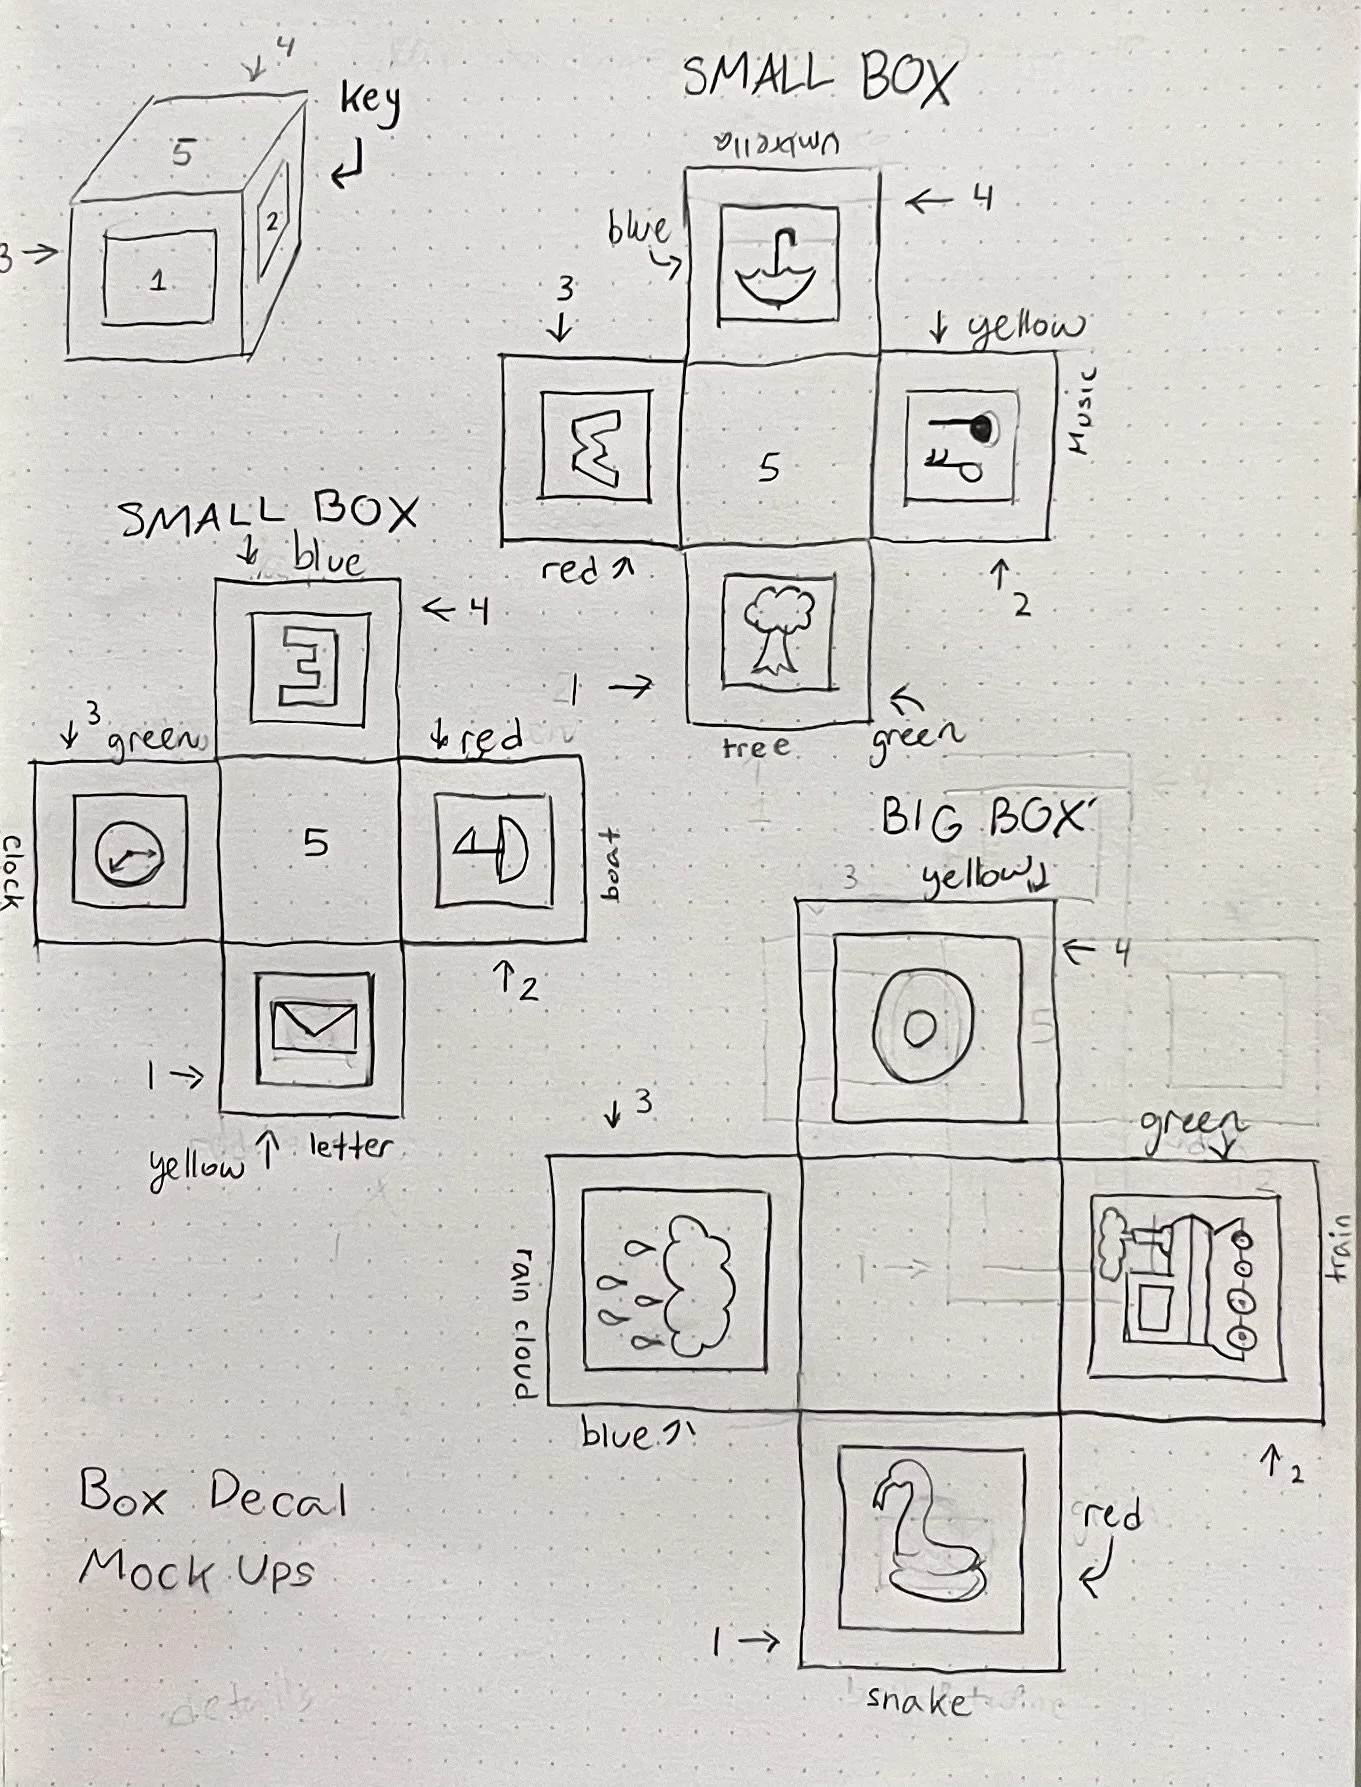 4
key
5
3
1
2
SMALL BOX
umbrella
4
blue
3
yellow
Music
5
red
2
1
tree
green
SMALL BOX
blue
4
3
green
red
clock
5
boat
2
1
yellow
letter
BIG BOX
3
yellow
4
5
3
green
2
train
rain cloud
1
blue
2
red
1
snake
Box Decal
Mock Ups
details